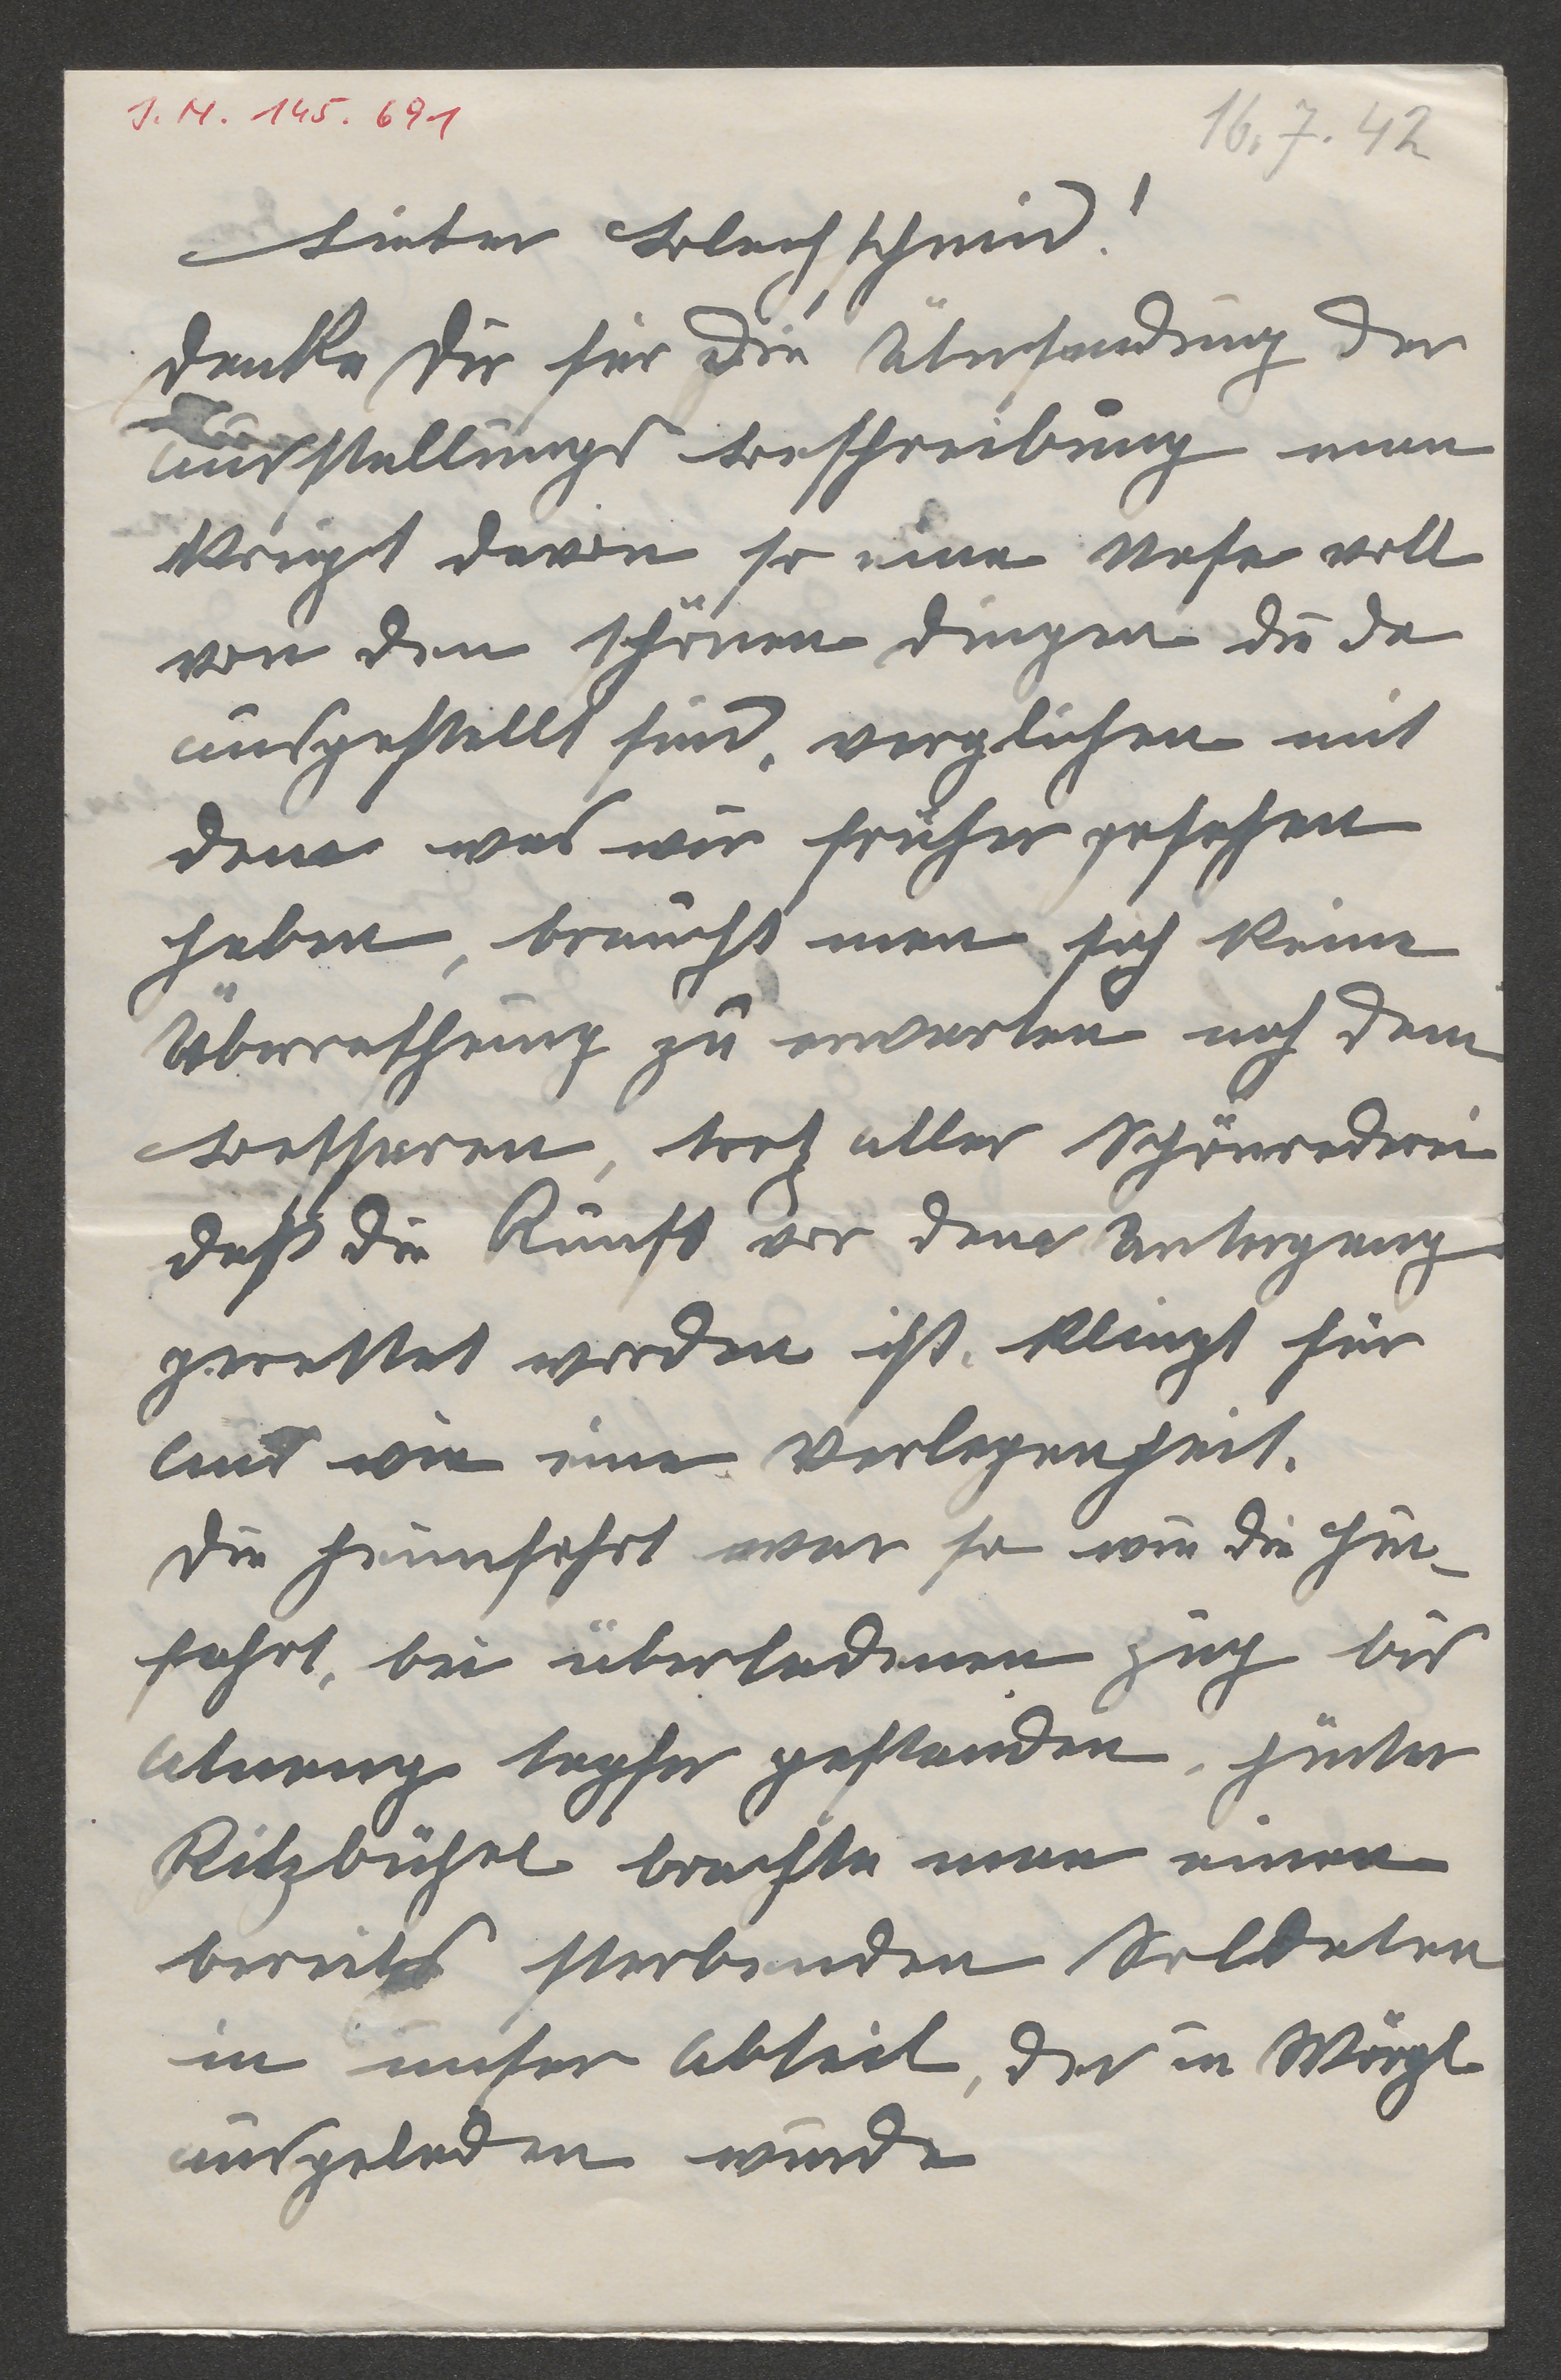 J.N. 145.691
16.7.42
Lieber Blechschmid!
Danke Dir für Die Übersendung der
Ausstellungs Beschreibung man
kriegt davon so eine Nase voll
von den schönen Dingen die da
ausgestellt sind, verglichen mit
dem was wir früher gesehen
haben, braucht man sich keine
Überraschung zu erwarten nach dem
Besseren, trotz aller Schönrederei
daß die Kunst vor dem Untergang
gerettet worden ist. klingt für
uns wie eine Verlegenheit.
Die Heimfahrt war so wie die Hin-
fahrt, bei überladenen Zug bis
Attnang tapfer gestanden. hinter
Kitzbühel brachte man einen
bereits sterbenden Soldaten
in unser Abteil, der in Wörgl
ausgeladen wurde